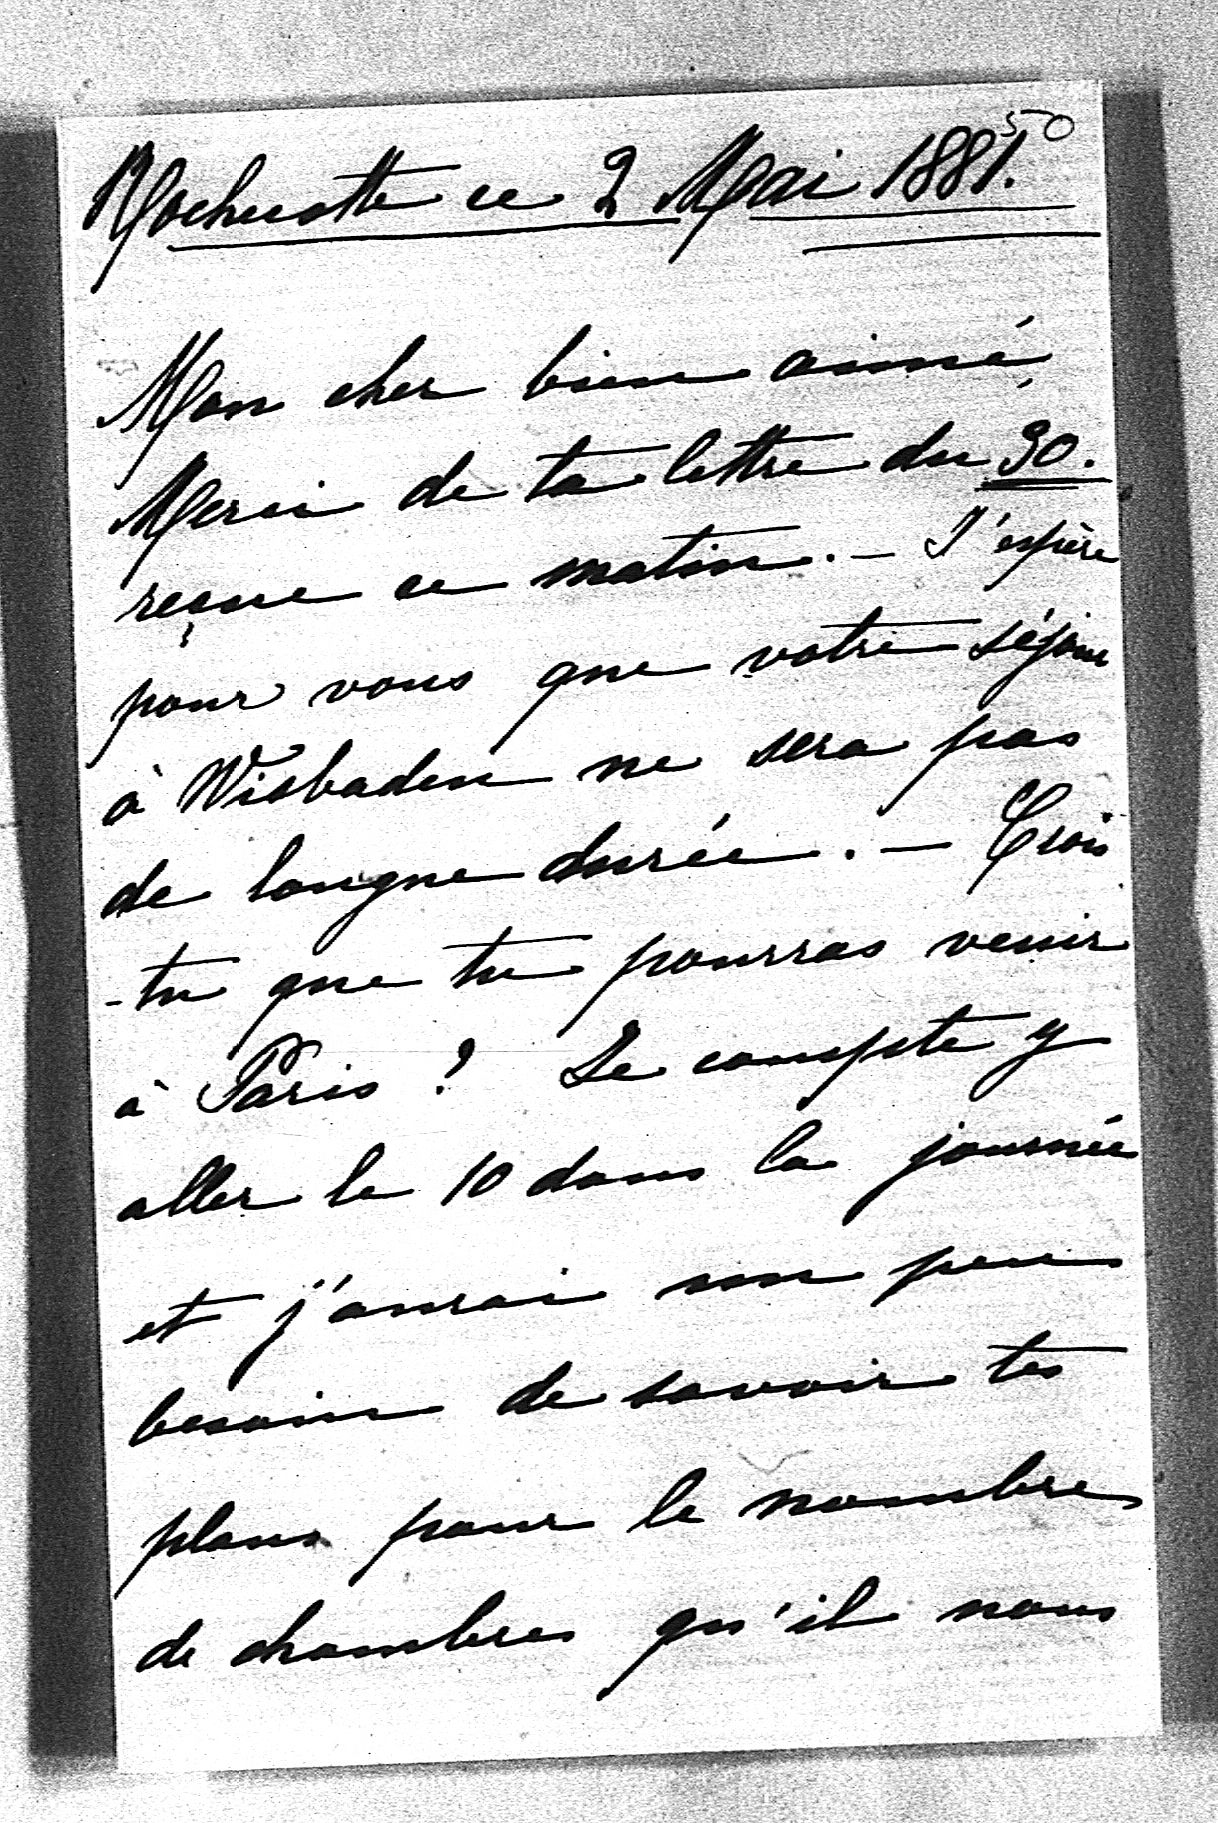 50
Rochecotte ce 2 Mai 1881.
Mon cher bien aimé,
Merci de ta lettre du 30.
reçue ce matin. — J'espère
pour vous que votre séjour
à Wisbaden ne sera pas
de longue durée. — Crois
-tu que tu pourras venir
à Paris ? Je compte y
aller le 10 dans la journée
et j'aurai un peu
besoin de savoir tes
plans pour le nombre
de chambres qu'il nous